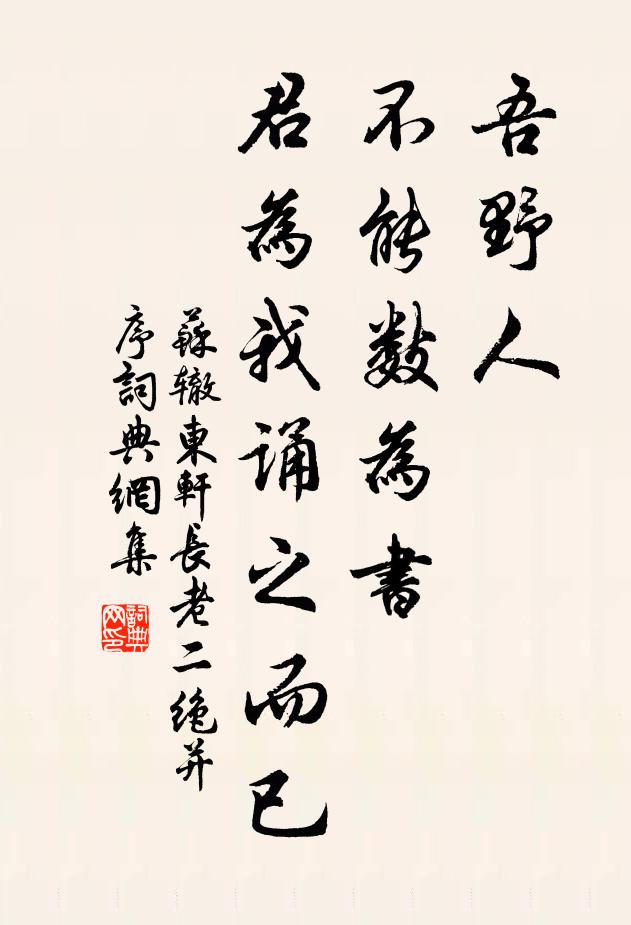 吾野人
不能數為書
君為我誦之而已
蘇轍東軒長老二絕并
序詞典網集
詞典
网印